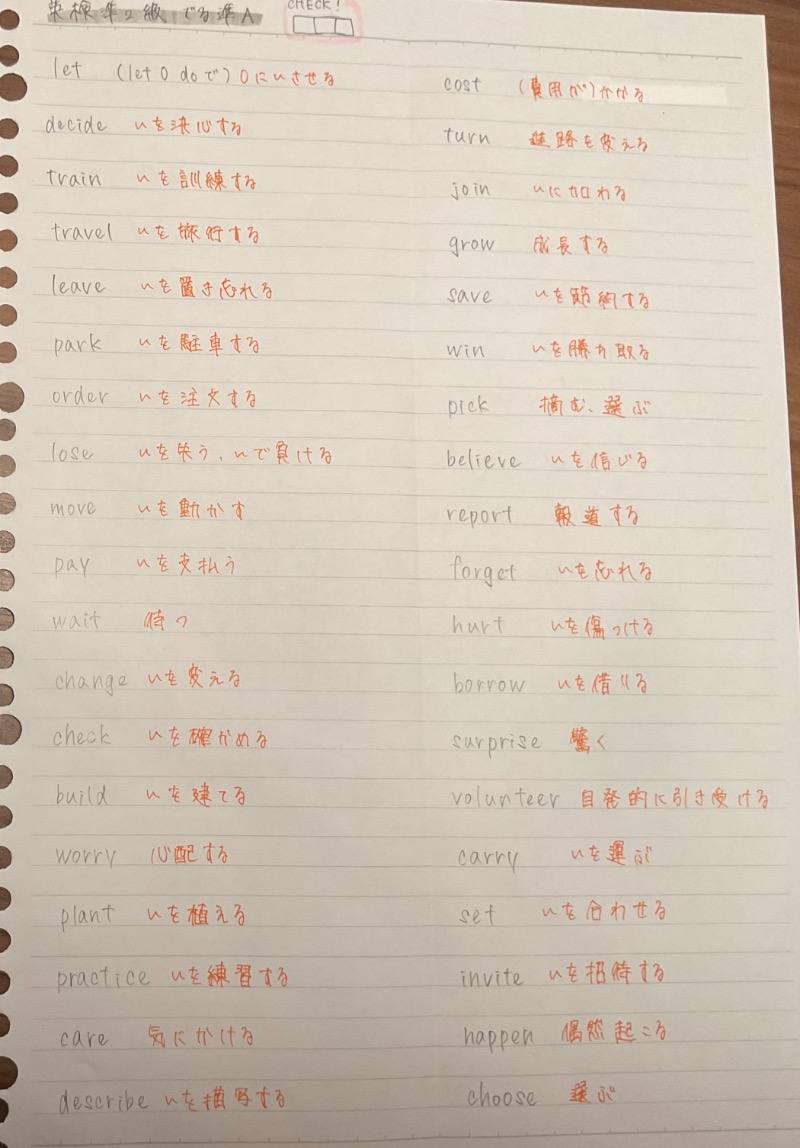 英検準2級 でる準A
CHECK!
let (let O do で) Oに〜させる
decide 〜を決心する
train 〜を訓練する
travel 〜を旅行する
leave 〜を置き忘れる
park 〜を駐車する
order 〜を注文する
lose 〜を失う、〜で負ける
move 〜を動かす
pay 〜を支払う
wait 待つ
change 〜を変える
check 〜を確かめる
build 〜を建てる
worry 心配する
plant 〜を植える
practice 〜を練習する
care 気にかける
describe 〜を描写する
cost (費用が)かかる
turn 進路を変える
join 〜に加わる
grow 成長する
save 〜を節約する
win 〜を勝ち取る
pick 摘む、選ぶ
believe 〜を信じる
report 報道する
forget 〜を忘れる
hurt 〜を傷つける
borrow 〜を借りる
surprise 驚く
volunteer 自発的に引き受ける
carry 〜を運ぶ
set 〜を合わせる
invite 〜を招待する
happen 偶然起こる
choose 選ぶ